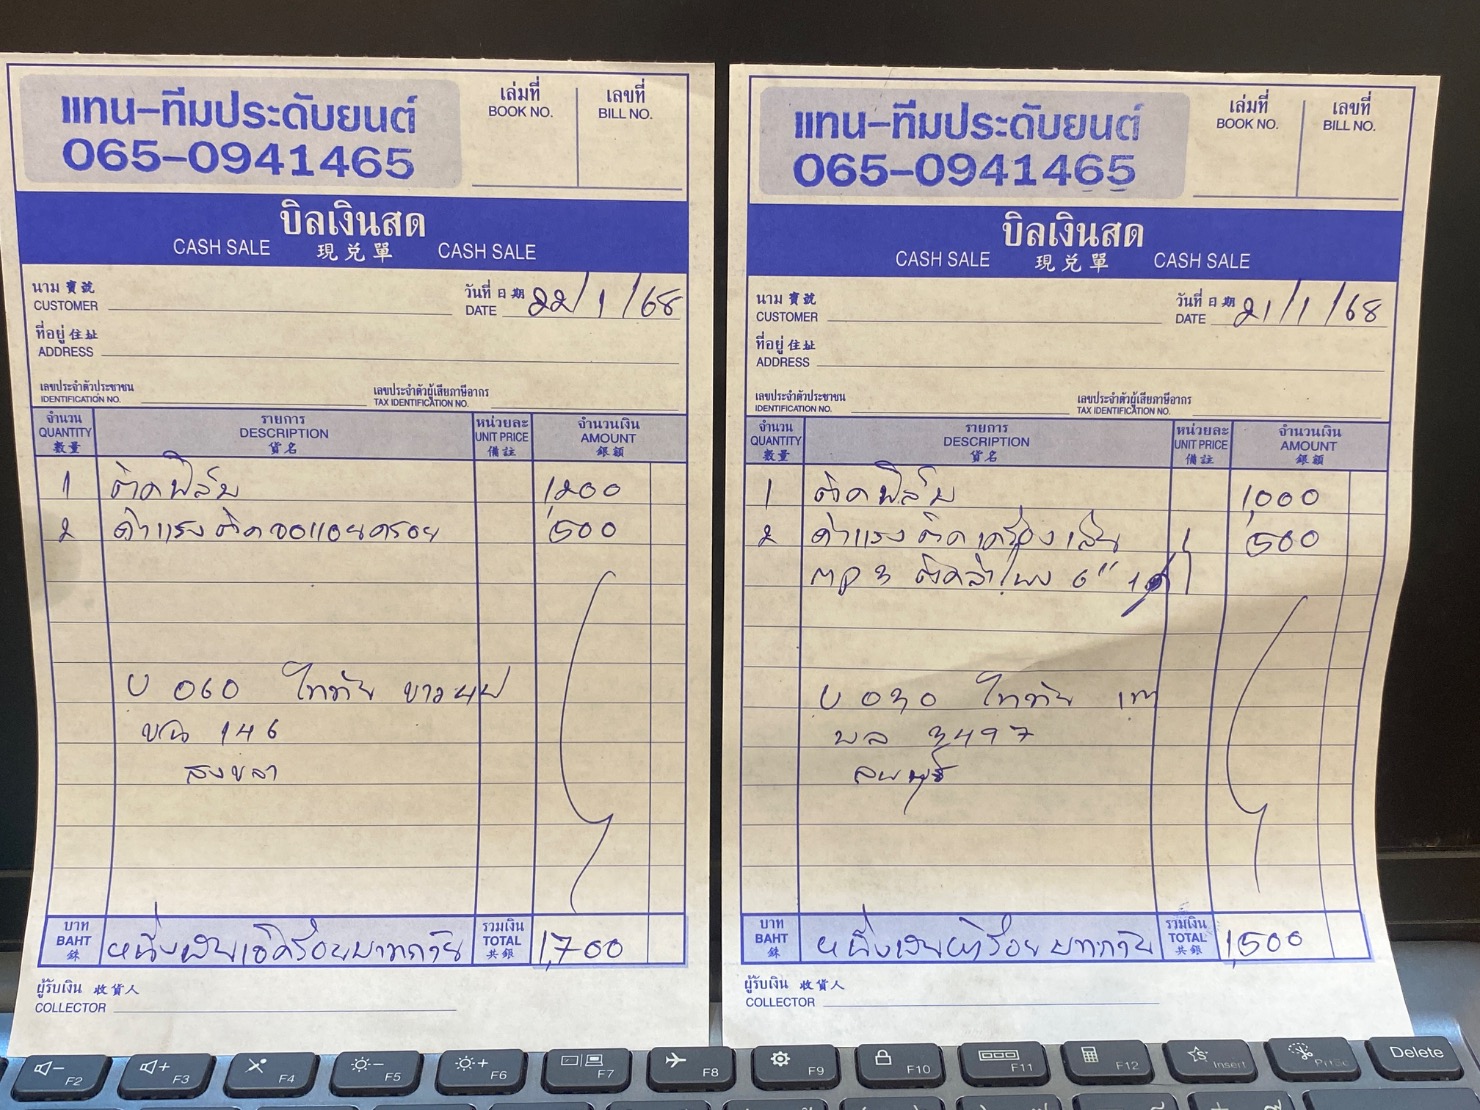 แทน-ทีมประดับยนต์
065-0941465
เล่มที่
BOOK NO.
เลขที่
BILL NO.
บิลเงินสด
CASH SALE 現兌單 CASH SALE
นาม 寶號
CUSTOMER
วันที่ 日期
DATE 22/1/68
ที่อยู่ 住址
ADDRESS
เลขประจำตัวประชาชน
IDENTIFICATION NO.
เลขประจำตัวผู้เสียภาษีอากร
TAX IDENTIFICATION NO.
จำนวน รายการ หน่วยละ จำนวนเงิน
QUANTITY DESCRIPTION UNIT PRICE AMOUNT
數量 貨名 備註 銀額
1 ติดฟิล์ม 1,200
2 ค่าแรงติดจอแอนดรอย 500
U 060 ไททัน ขาว
ขน 146
สงขลา
บาท รวมเงิน
BAHT หนึ่งพันเจ็ดร้อยบาทถ้วน TOTAL 1,700
銖 共銀
ผู้รับเงิน 收貨人
COLLECTOR
แทน-ทีมประดับยนต์
065-0941465
เล่มที่
BOOK NO.
เลขที่
BILL NO.
บิลเงินสด
CASH SALE 現兌單 CASH SALE
นาม 寶號
CUSTOMER
วันที่ 日期
DATE 21/1/68
ที่อยู่ 住址
ADDRESS
เลขประจำตัวประชาชน
IDENTIFICATION NO.
เลขประจำตัวผู้เสียภาษีอากร
TAX IDENTIFICATION NO.
จำนวน รายการ หน่วยละ จำนวนเงิน
QUANTITY DESCRIPTION UNIT PRICE AMOUNT
數量 貨名 備註 銀額
1 ติดฟิล์ม 1,000
2 ค่าแรงติดเครื่องเล่น 500
MP3 ติดลำโพง 6" 1
U 030 ไททัน เทา
ผล 3497
ลพบุรี
บาท รวมเงิน
BAHT หนึ่งพันห้าร้อยบาทถ้วน TOTAL 1,500
銖 共銀
ผู้รับเงิน 收貨人
COLLECTOR
F2 F3 F4 F5 F6 F7 F8 F9 F10 F11 F12 Insert PrtSc Delete